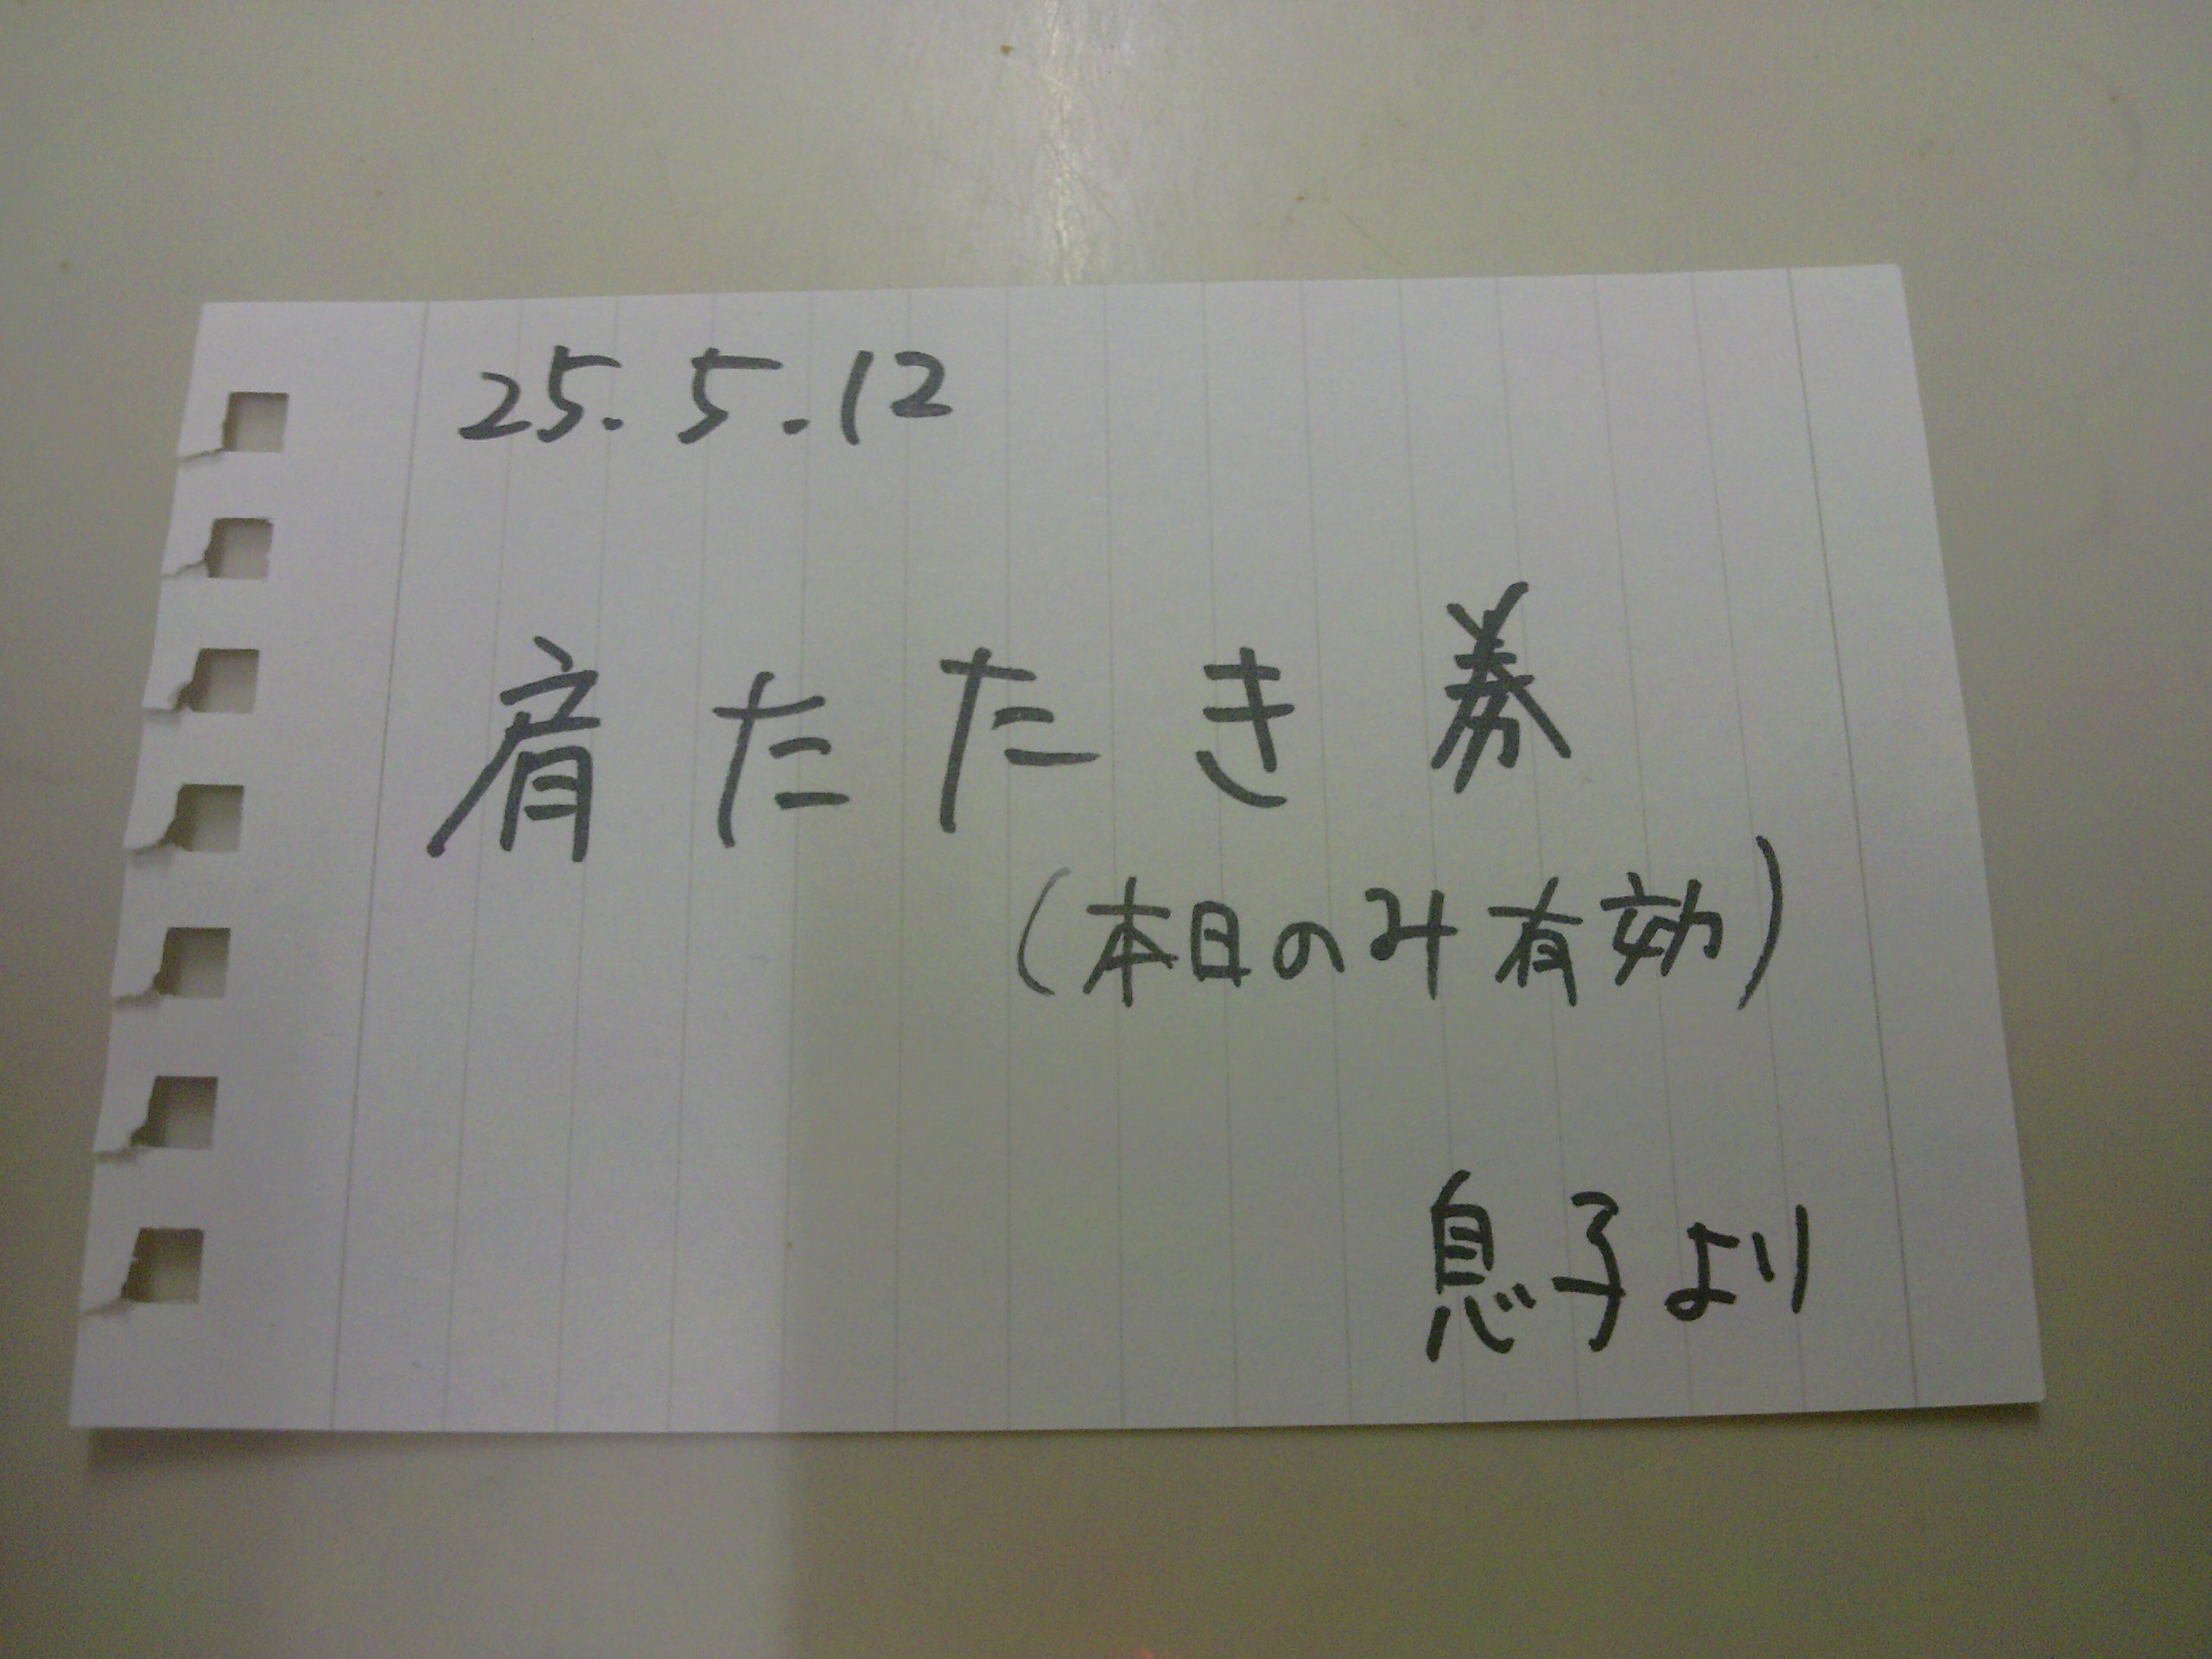 25.5.12
肩たたき券
(本日のみ有効)
息子より